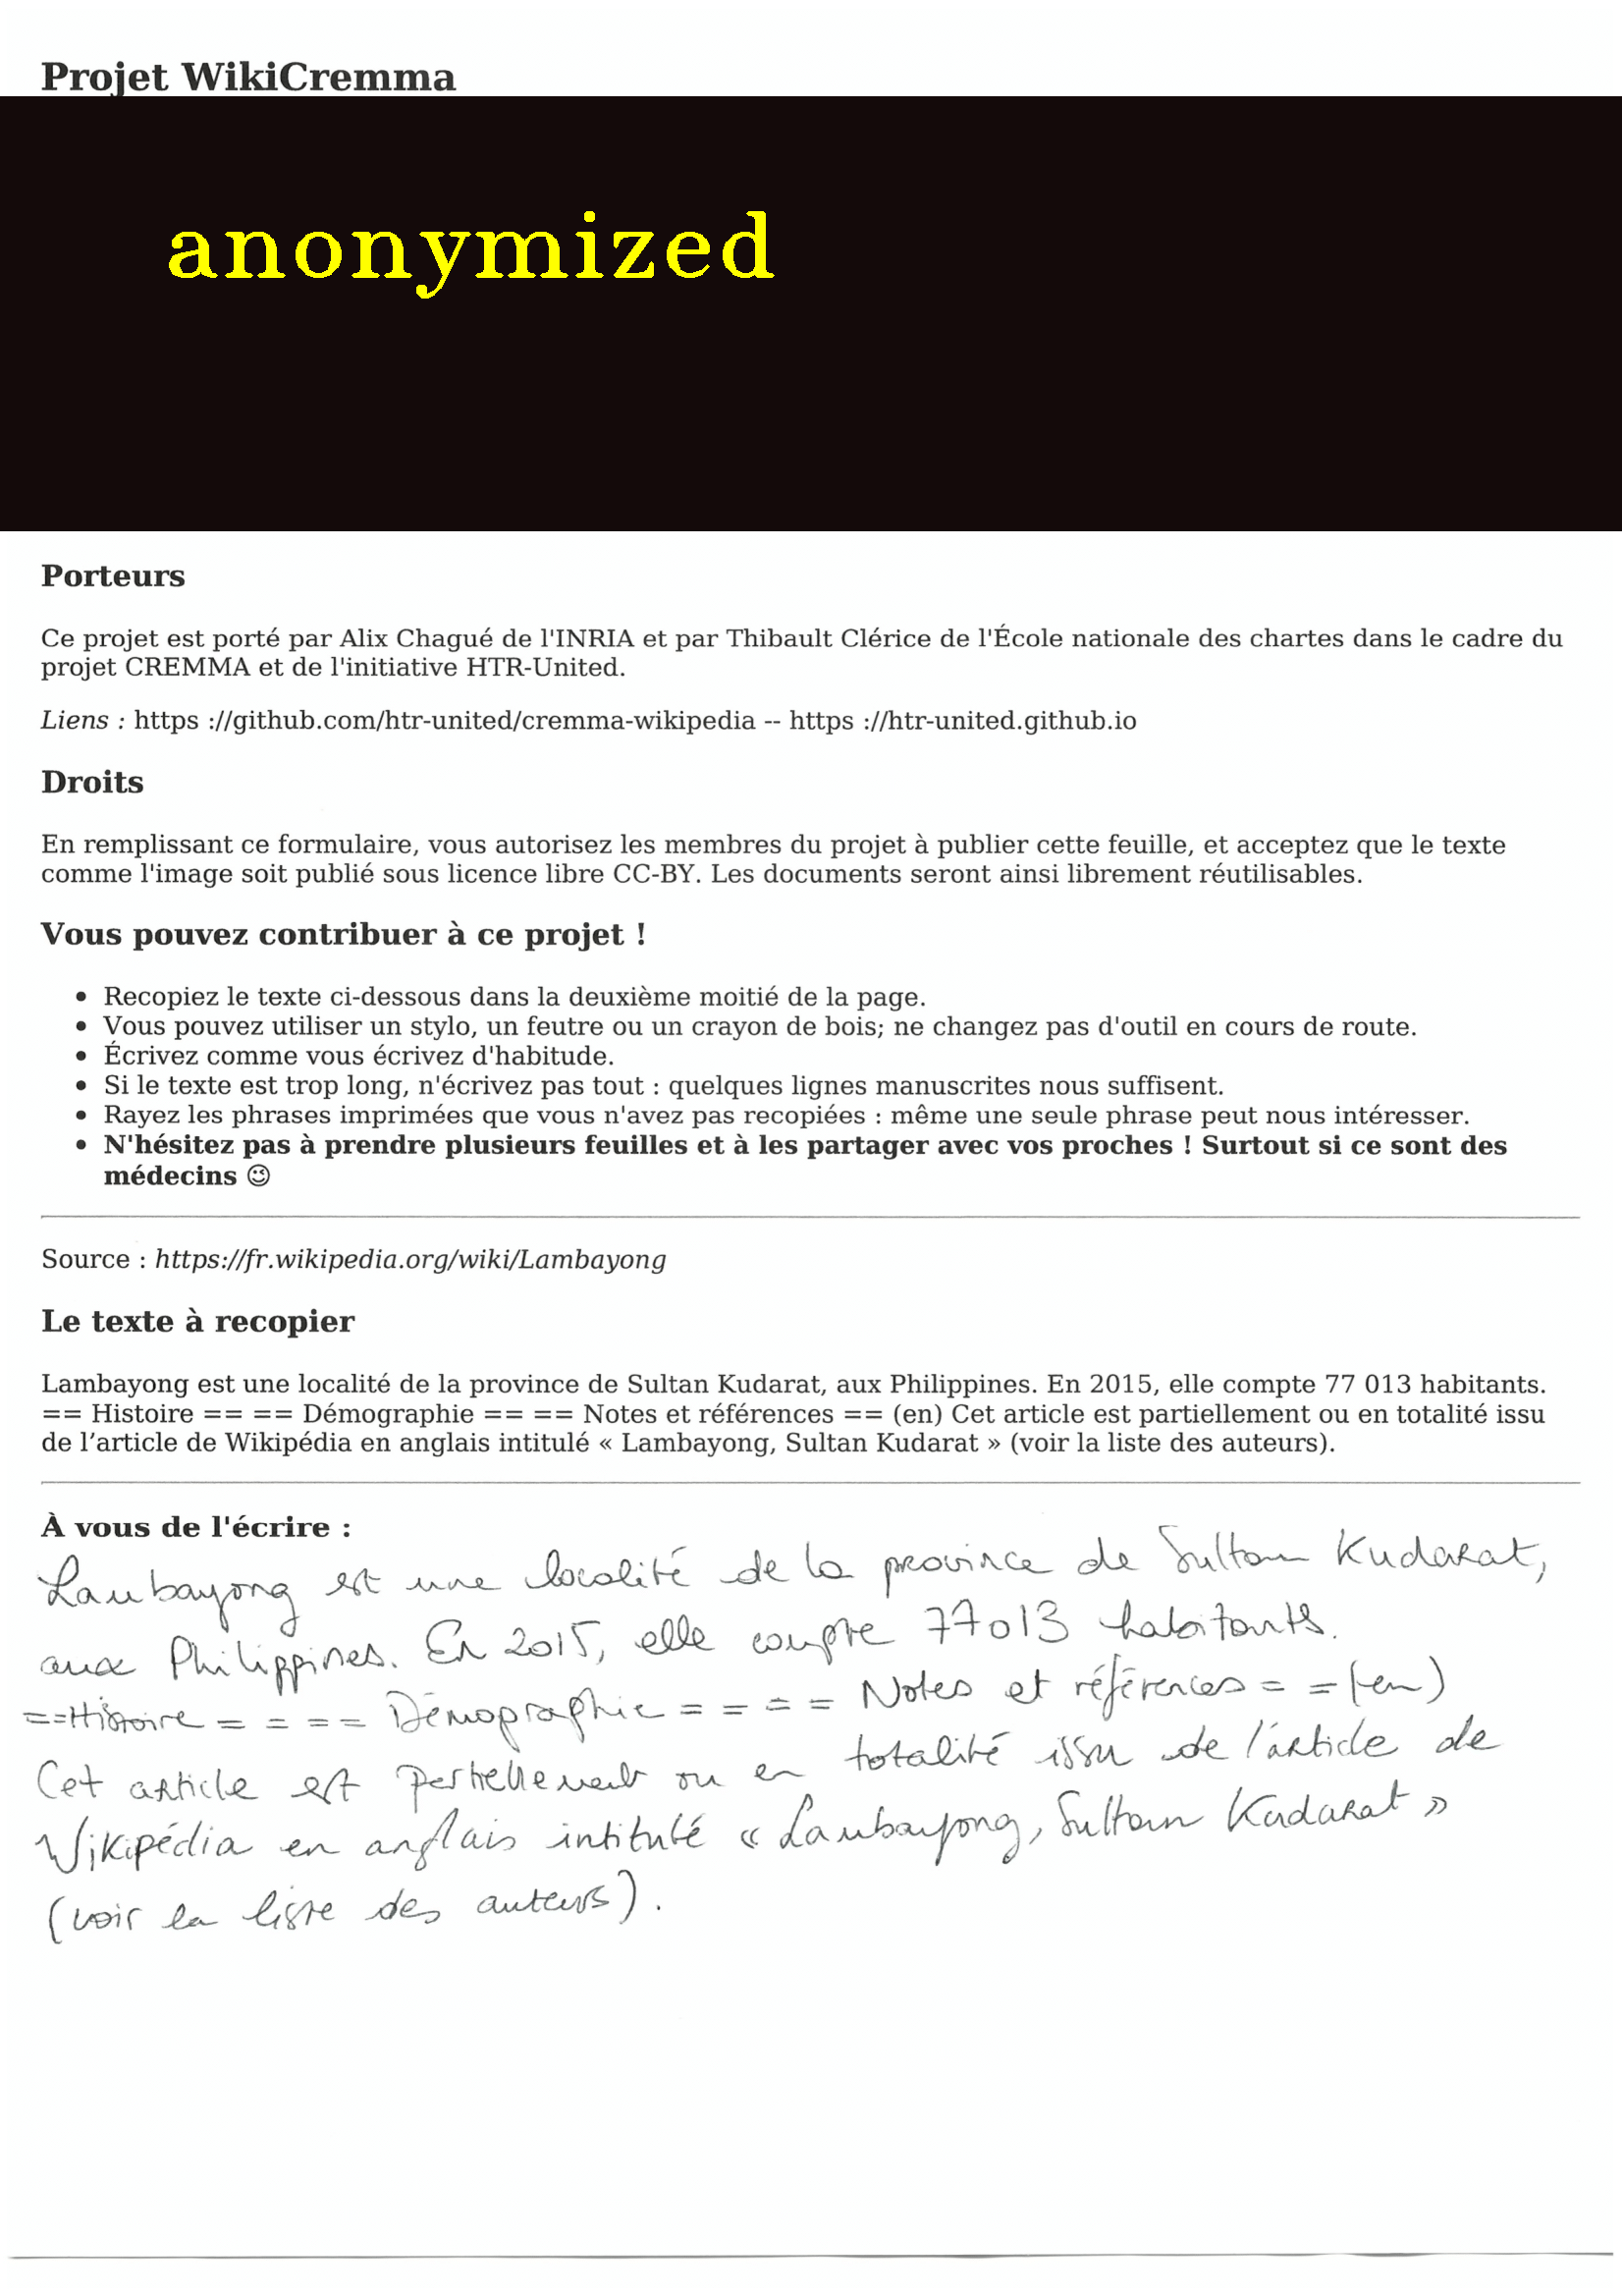 Projet WikiCremma
anonymized
Porteurs
Ce projet est porté par Alix Chagué de l'INRIA et par Thibault Clérice de l'École nationale des chartes dans le cadre du
projet CREMMA et de l'initiative HTR-United.
Liens : https ://github.com/htr-united/cremma-wikipedia -- https ://htr-united.github.io
Droits
En remplissant ce formulaire, vous autorisez les membres du projet à publier cette feuille, et acceptez que le texte
comme l'image soit publié sous licence libre CC-BY. Les documents seront ainsi librement réutilisables.
Vous pouvez contribuer à ce projet !
• Recopiez le texte ci-dessous dans la deuxième moitié de la page.
• Vous pouvez utiliser un stylo, un feutre ou un crayon de bois; ne changez pas d'outil en cours de route.
• Écrivez comme vous écrivez d'habitude.
• Si le texte est trop long, n'écrivez pas tout : quelques lignes manuscrites nous suffisent.
• Rayez les phrases imprimées que vous n'avez pas recopiées : même une seule phrase peut nous intéresser.
• N'hésitez pas à prendre plusieurs feuilles et à les partager avec vos proches ! Surtout si ce sont des
médecins 😉
Source : https://fr.wikipedia.org/wiki/Lambayong
Le texte à recopier
Lambayong est une localité de la province de Sultan Kudarat, aux Philippines. En 2015, elle compte 77 013 habitants.
== Histoire == == Démographie == == Notes et références == (en) Cet article est partiellement ou en totalité issu
de l’article de Wikipédia en anglais intitulé « Lambayong, Sultan Kudarat » (voir la liste des auteurs).
À vous de l'écrire :
Lambayong est une localité de la province de Sultan Kudarat,
aux Philippines. En 2015, elle compte 77013 habitants.
==Histoire = = = = Démographie = = = = Notes et références = = (en)
Cet article est partiellement ou en totalité issu de l'article de
Wikipédia en anglais intitulé « Lambayong, Sultan Kudarat »
(voir la liste des auteurs).